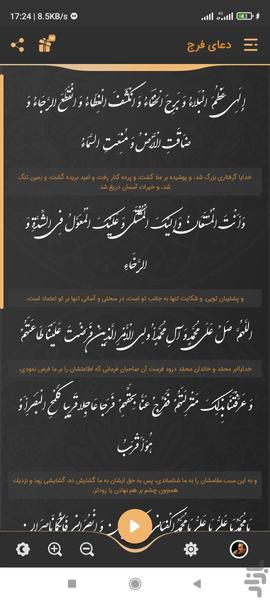 17:24 | 8.5KB/s
دعای فرج
إِلَهِي عَظُمَ الْبَلاءُ وَ بَرِحَ الْخَفَاءُ وَ انْكَشَفَ الْغِطَاءُ وَ انْقَطَعَ الرَّجَاءُ وَ
ضَاقَتِ الْأَرْضُ وَ مُنِعَتِ السَّمَاءُ
خدایا گرفتاری بزرگ شد، و پوشیده بر ملا گشت، و پرده کنار رفت، و امید بریده گشت، و زمین تنگ
شد، و خیرات آسمان دریغ شد
وَ أَنْتَ الْمُسْتَعَانُ وَ إِلَيْكَ الْمُشْتَكَى وَ عَلَيْكَ الْمُعَوَّلُ فِي الشِّدَّةِ وَ
الرَّخَاءِ
و پشتیبان تویی، و شکایت تنها به جانب تو است، در سختی و آسانی تنها بر تو اعتماد است،
اللَّهُمَّ صَلِّ عَلَى مُحَمَّدٍ وَ آلِ مُحَمَّدٍ أُولِي الْأَمْرِ الَّذِينَ فَرَضْتَ عَلَيْنَا طَاعَتَهُمْ
خدایا!بر محمّد و خاندان محمّد درود فرست آن صاحبان فرمانی که اطاعتشان را بر ما فرض نمودی،
وَ عَرَّفْتَنَا بِذَلِكَ مَنْزِلَتَهُمْ فَفَرِّجْ عَنَّا بِحَقِّهِمْ فَرَجا عَاجِلا قَرِيبا كَلَمْحِ الْبَصَرِ أَوْ
هُوَ أَقْرَبُ
و به این سبب مقامشان را به ما شناساندی، پس به حق ایشان به ما گشایش ده، گشایشی زود و نزدیک
همچون چشم بر هم نهادن یا زودتر،
يَا مُحَمَّدُ يَا عَلِيُّ يَا عَلِيُّ يَا مُحَمَّدُ اكْفِيَانِي وَ انْصُرَانِي فَإِنَّكُمَا نَاصِرَانِ
بازار